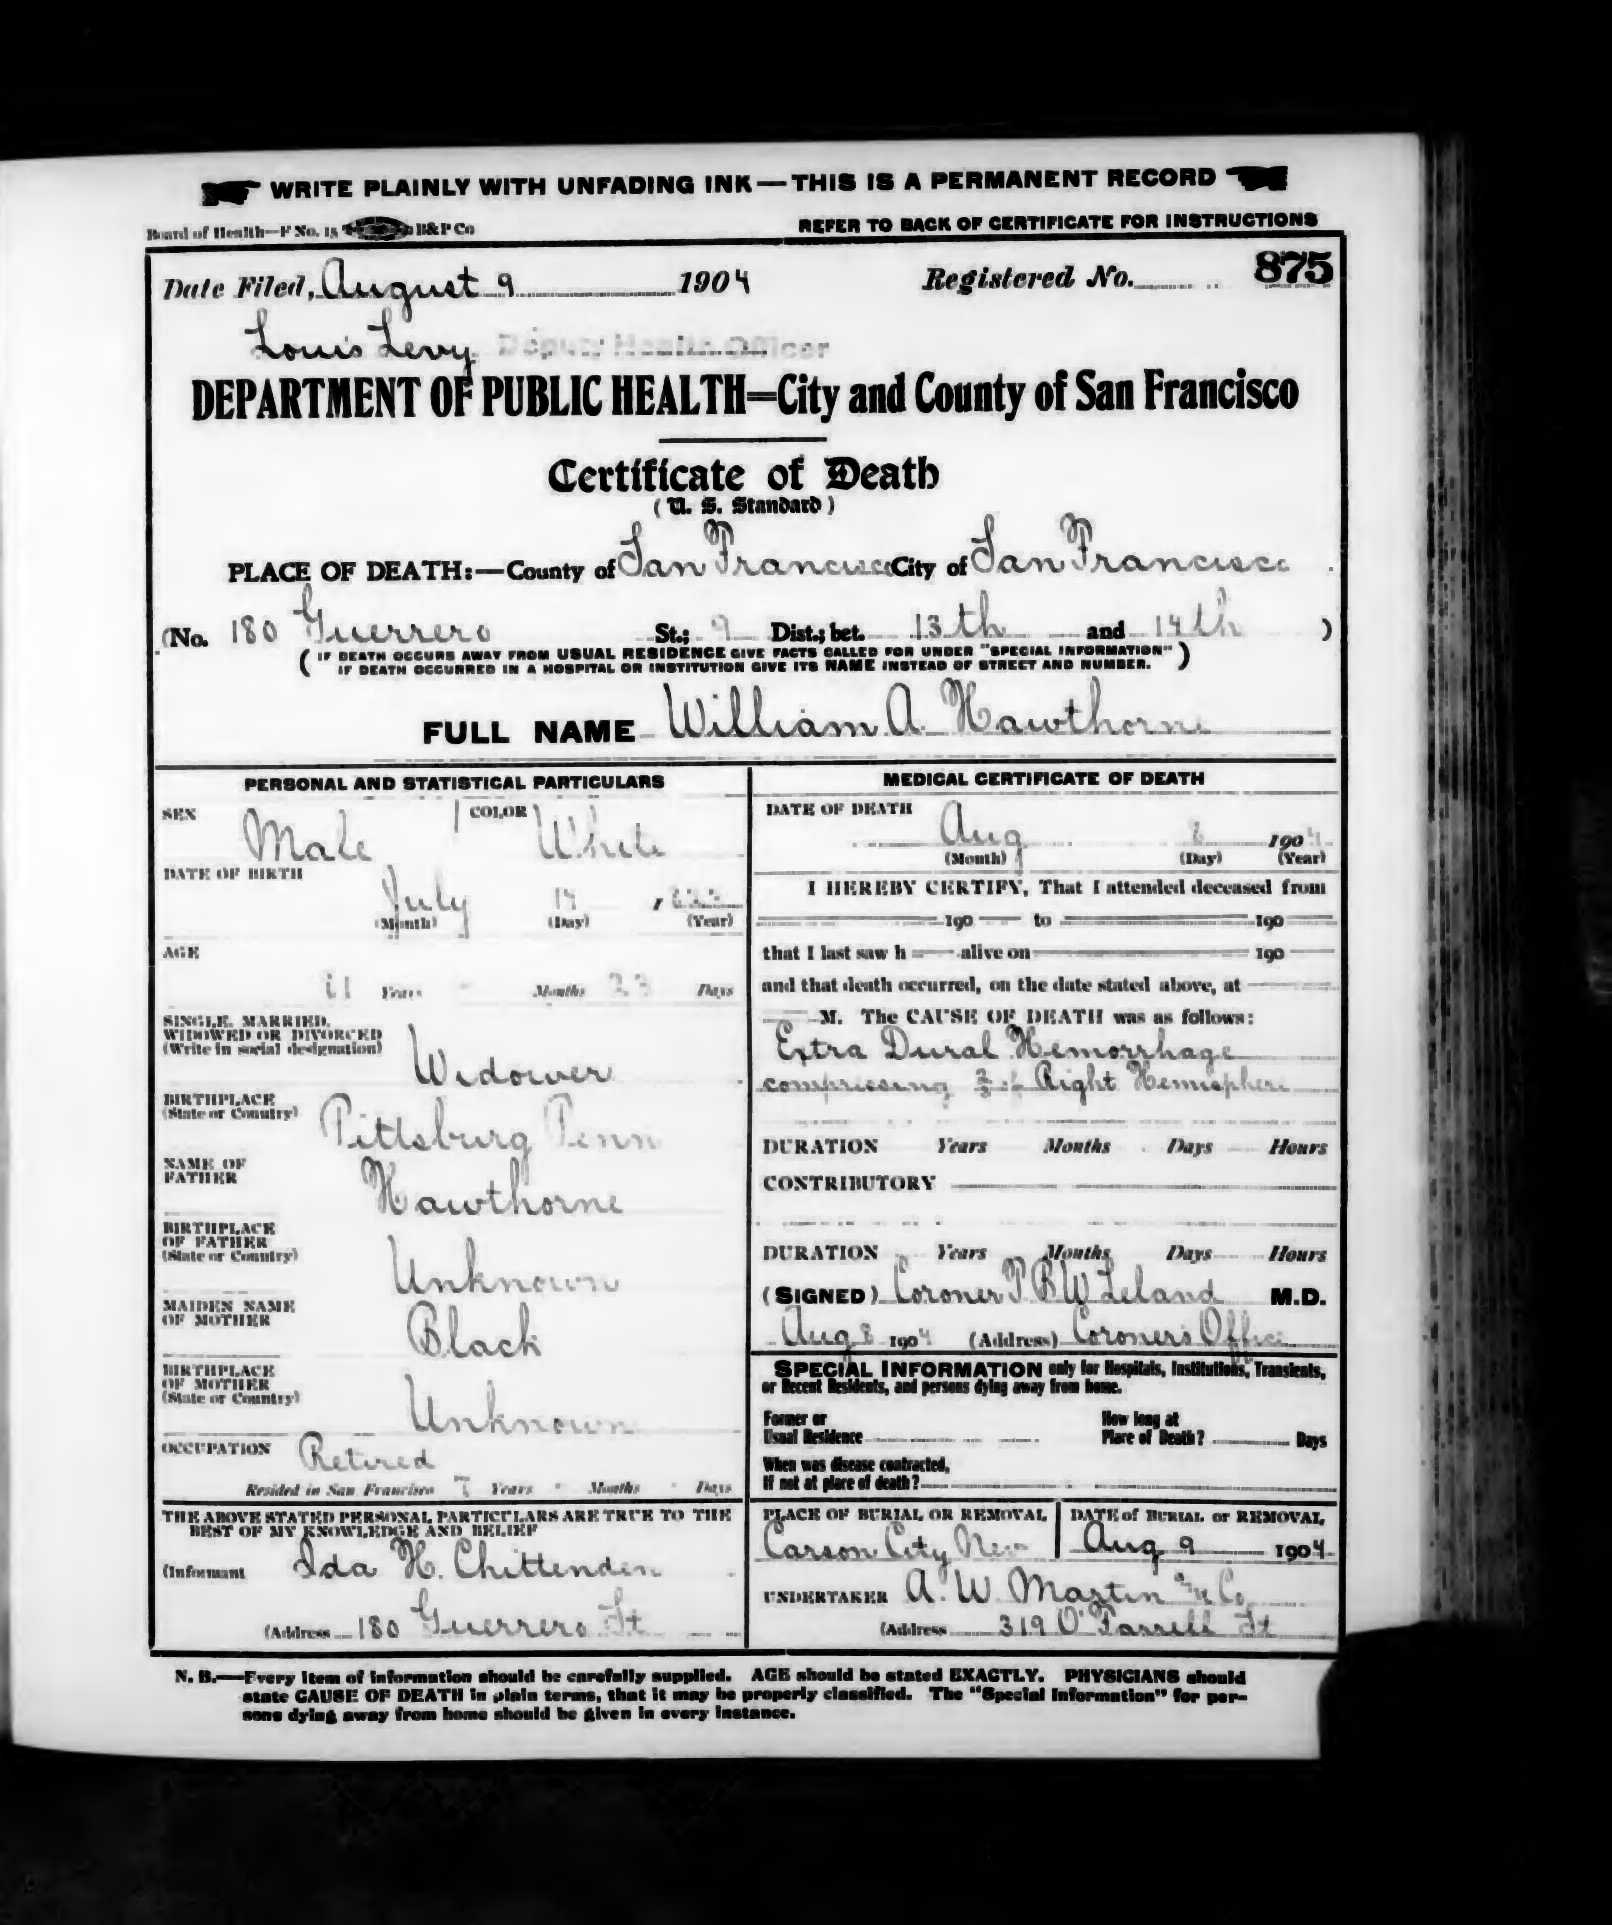 WRITE PLAINLY WITH UNFADING INK—THIS IS A PERMANENT RECORD
Board of Health—F No. 15 B&P Co
REFER TO BACK OF CERTIFICATE FOR INSTRUCTIONS
Date Filed, August 9 1904 Registered No. 875
Louis Levy Deputy Health Officer
DEPARTMENT OF PUBLIC HEALTH=City and County of San Francisco
Certificate of Death
(U. S. Standard)
PLACE OF DEATH:—County of San Francisco City of San Francisco
(No. 180 Guerrero St.; 9 Dist.; bet. 13th and 14th )
( IF DEATH OCCURS AWAY FROM USUAL RESIDENCE GIVE FACTS CALLED FOR UNDER "SPECIAL INFORMATION"
IF DEATH OCCURRED IN A HOSPITAL OR INSTITUTION GIVE ITS NAME INSTEAD OF STREET AND NUMBER. )
FULL NAME William A. Hawthorne
PERSONAL AND STATISTICAL PARTICULARS
SEX Male COLOR White
DATE OF BIRTH
July 14 1
(Month) (Day) (Year)
AGE
Years Months 23 Days
SINGLE, MARRIED,
WIDOWED OR DIVORCED
(Write in social designation)
Widower
BIRTHPLACE
(State or Country)
Pittsburg Penn
NAME OF
FATHER
Hawthorne
BIRTHPLACE
OF FATHER
(State or Country)
Unknown
MAIDEN NAME
OF MOTHER
Black
BIRTHPLACE
OF MOTHER
(State or Country)
Unknown
OCCUPATION Retired
Resided in San Francisco 7 Years Months Days
THE ABOVE STATED PERSONAL PARTICULARS ARE TRUE TO THE
BEST OF MY KNOWLEDGE AND BELIEF
(Informant Ida H. Chittenden
(Address 180 Guerrero St
MEDICAL CERTIFICATE OF DEATH
DATE OF DEATH
Aug 8 1904
(Month) (Day) (Year)
I HEREBY CERTIFY, That I attended deceased from
190 to 190
that I last saw h alive on 190
and that death occurred, on the date stated above, at
M. The CAUSE OF DEATH was as follows:
Extra Dural Hemorrhage
compressing 2/3 of Right Hemisphere
DURATION Years Months Days Hours
CONTRIBUTORY
DURATION Years Months Days Hours
(SIGNED) Coroner T B W Leland M.D.
Aug 8 1904 (Address) Coroner's Office
SPECIAL INFORMATION only for Hospitals, Institutions, Transients,
or Recent Residents, and persons dying away from home.
Former or
Usual Residence
How long at
Place of Death? Days
When was disease contracted,
If not at place of death?
PLACE OF BURIAL OR REMOVAL
Carson City Nev
DATE of BURIAL or REMOVAL
Aug 9 1904
UNDERTAKER A. W. Martin & Co
(Address 319 O'Farrell St
N. B.—Every item of information should be carefully supplied. AGE should be stated EXACTLY. PHYSICIANS should
state CAUSE OF DEATH in plain terms, that it may be properly classified. The "Special Information" for per-
sons dying away from home should be given in every instance.